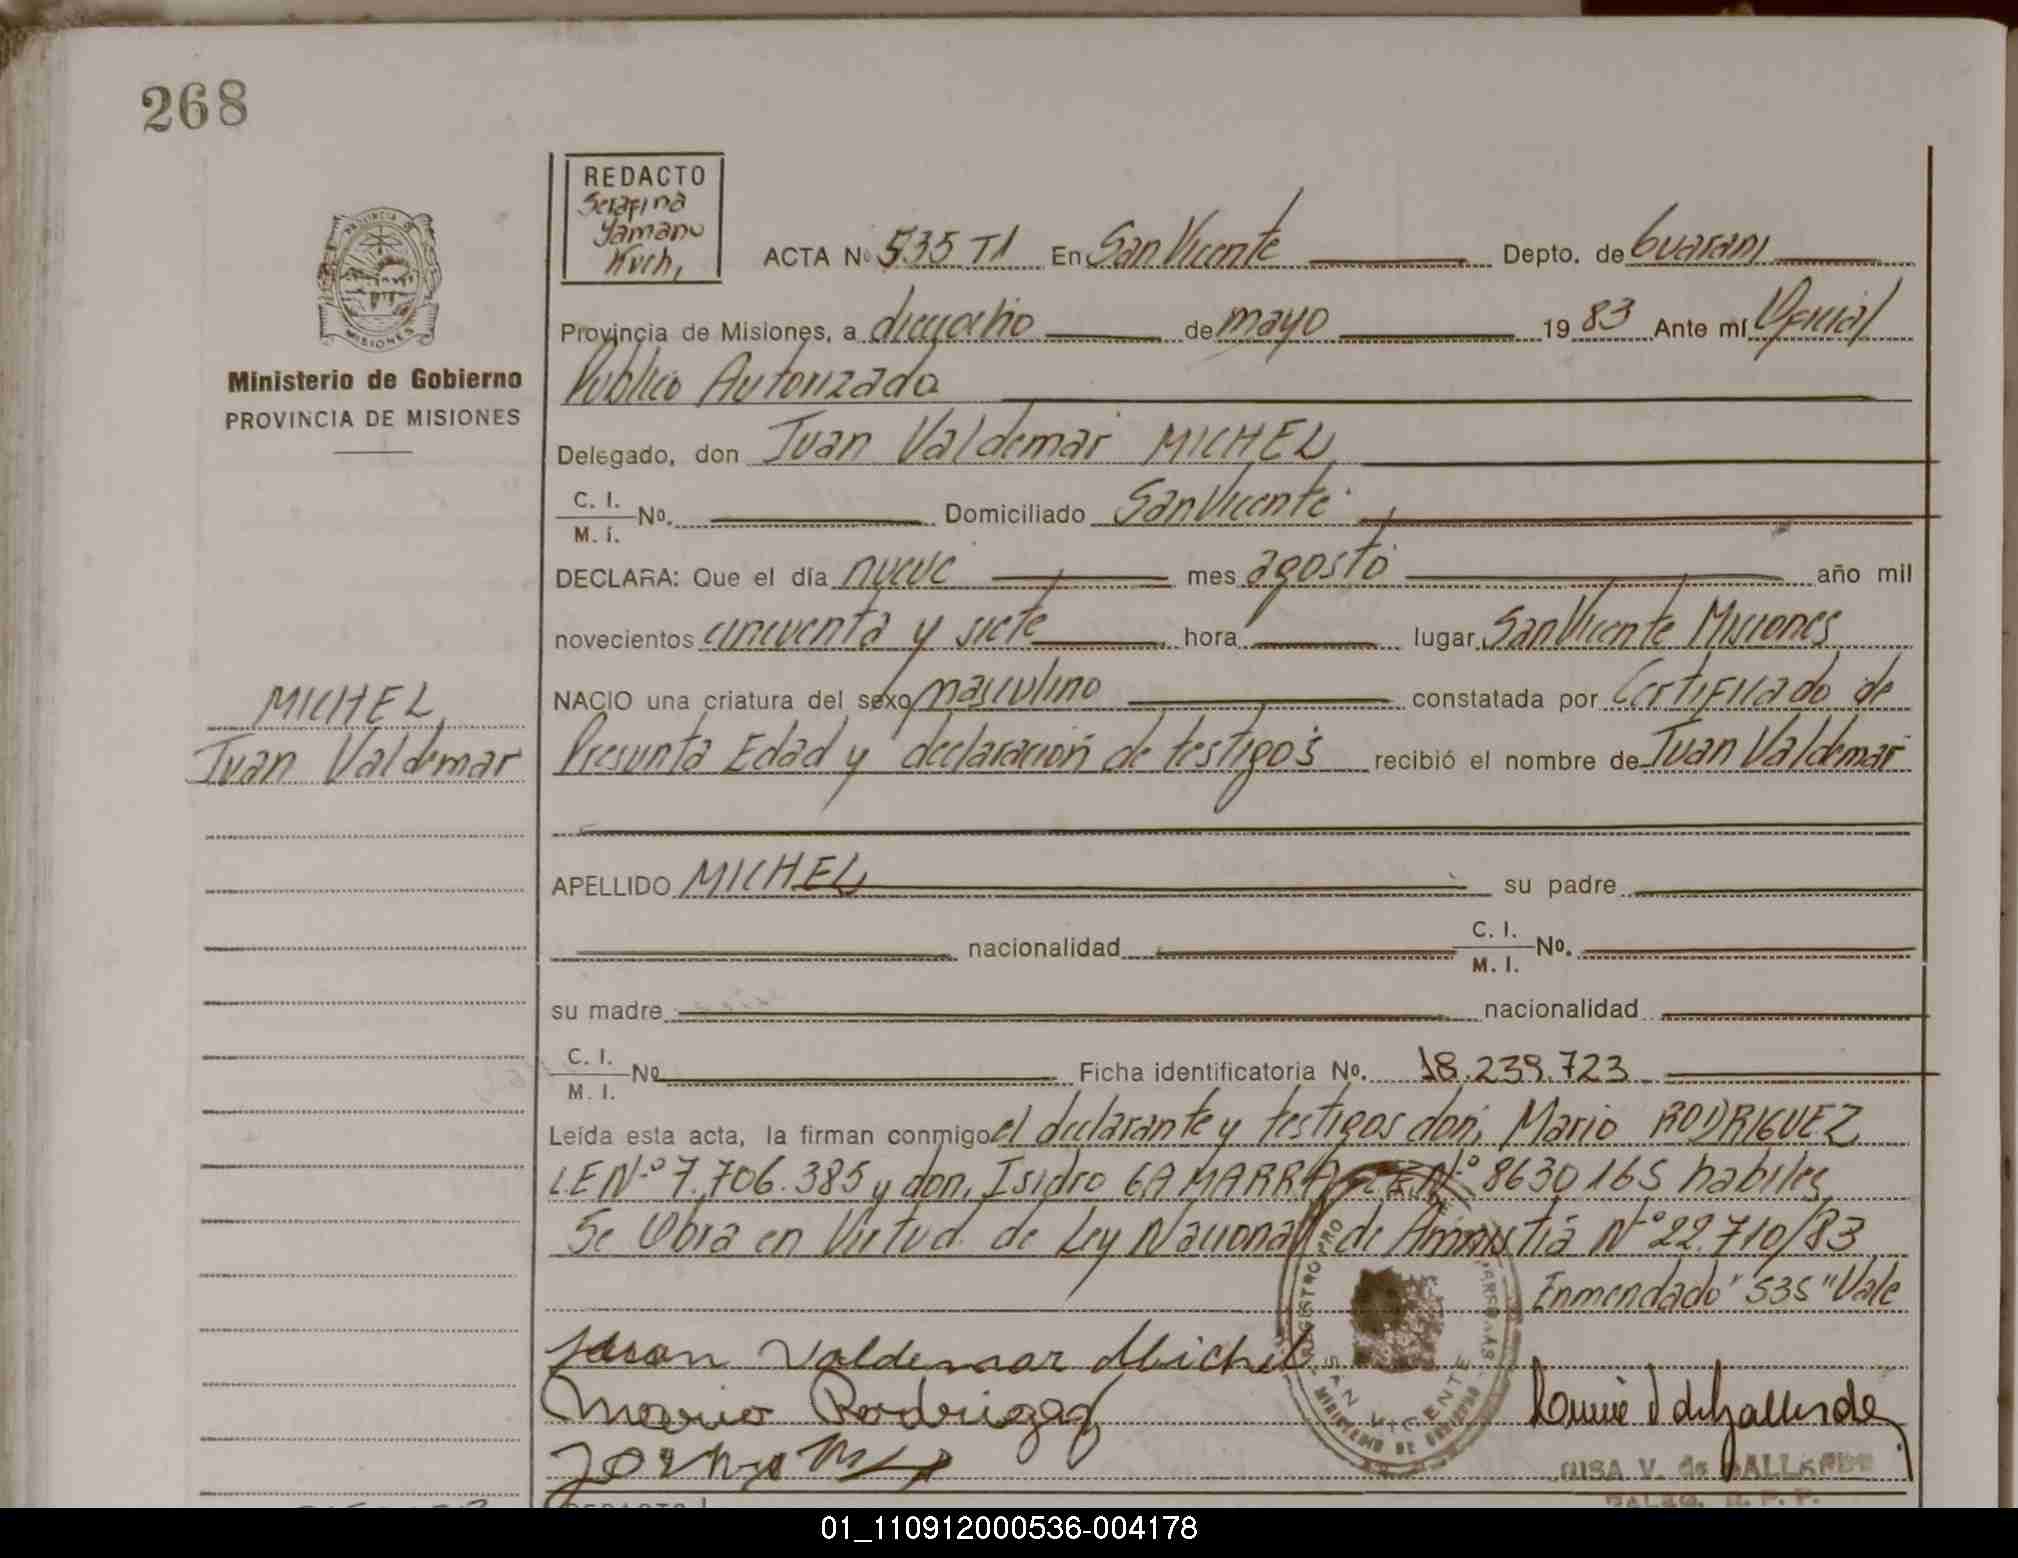 268
REDACTO
Serafina
Yamanu
Kuch,
PROVINCIA DE
MISIONES
ACTA Nº 535 T1 En San Vicente Depto. de Guarani
Provincia de Misiones, a dieciocho de mayo 1983 Ante mí Oficial
Público Autorizado
Ministerio de Gobierno
PROVINCIA DE MISIONES
Delegado, don Juan Valdemar MICHEL
C. I.
M. I. No. Domiciliado San Vicente
DECLARA: Que el día nueve mes agosto año mil
novecientos cincuenta y siete hora lugar San Vicente Misiones
NACIO una criatura del sexo masculino constatada por Certificado de
MICHEL
Juan Valdemar
Presunta Edad y declaración de testigos recibió el nombre de Juan Valdemar
APELLIDO MICHEL su padre
nacionalidad C. I.
M. I. No.
su madre nacionalidad
C. I.
M. I. No Ficha identificatoria No. 18.239.723
Leída esta acta, la firman conmigo el declarante y testigos don, Mario RODRIGUEZ
LE N.º 7.706.385 y don, Isidro GAMARRA LE N.º 8630165 habiles
Se Obra en Virtud de Ley Nacional de Amnistia Nº 22.710/83
Enmendado "535" Vale
Juan Valdemar Michel
Mario Rodriguez
SAN VICENTE
MINISTERIO DE GOBIERNO
LUISA V. de GALLARDO